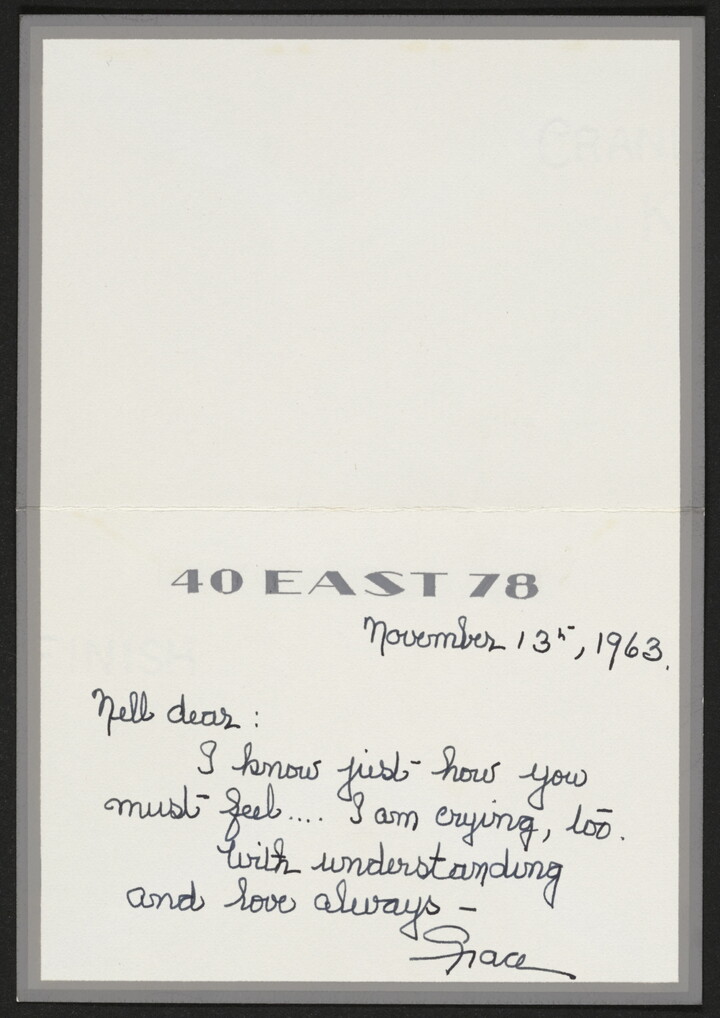 40 EAST 78
November 13th, 1963.
Nell dear:
I know just how you
must feel.... I am crying, too.
With understanding
and love always -
Grace
FINISH